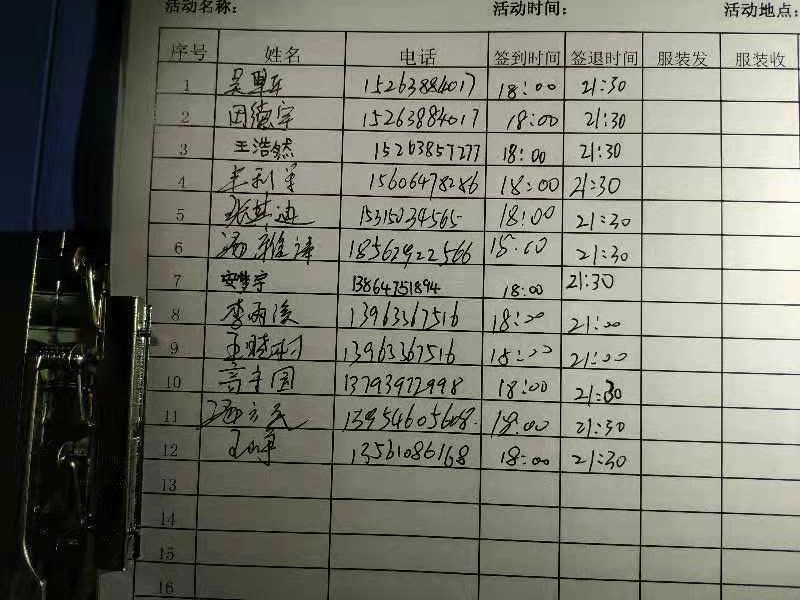 活动名称： 活动时间： 活动地点：
序号 姓名 电话 签到时间 签退时间 服装发 服装收
1 15263884017 18:00 21:30
2 因德宇 15263884017 18:00 21:30
3 王浩然 15263857277 18:00 21:30
4 15606478286 18:00 21:30
5 张其迪 15315034565 18:00 21:30
6 汤雅涛 18562922566 18:00 21:30
7 安梦宇 13864751894 18:00 21:30
8 李雨俊 13963367516 18:00 21:00
9 王晓利 13963367516 18:00 21:00
10 高守国 13793972998 18:00 21:30
11 汤立民 13954605608. 18:00 21:30
12 13561086168 18:00 21:30
13
14
15
16